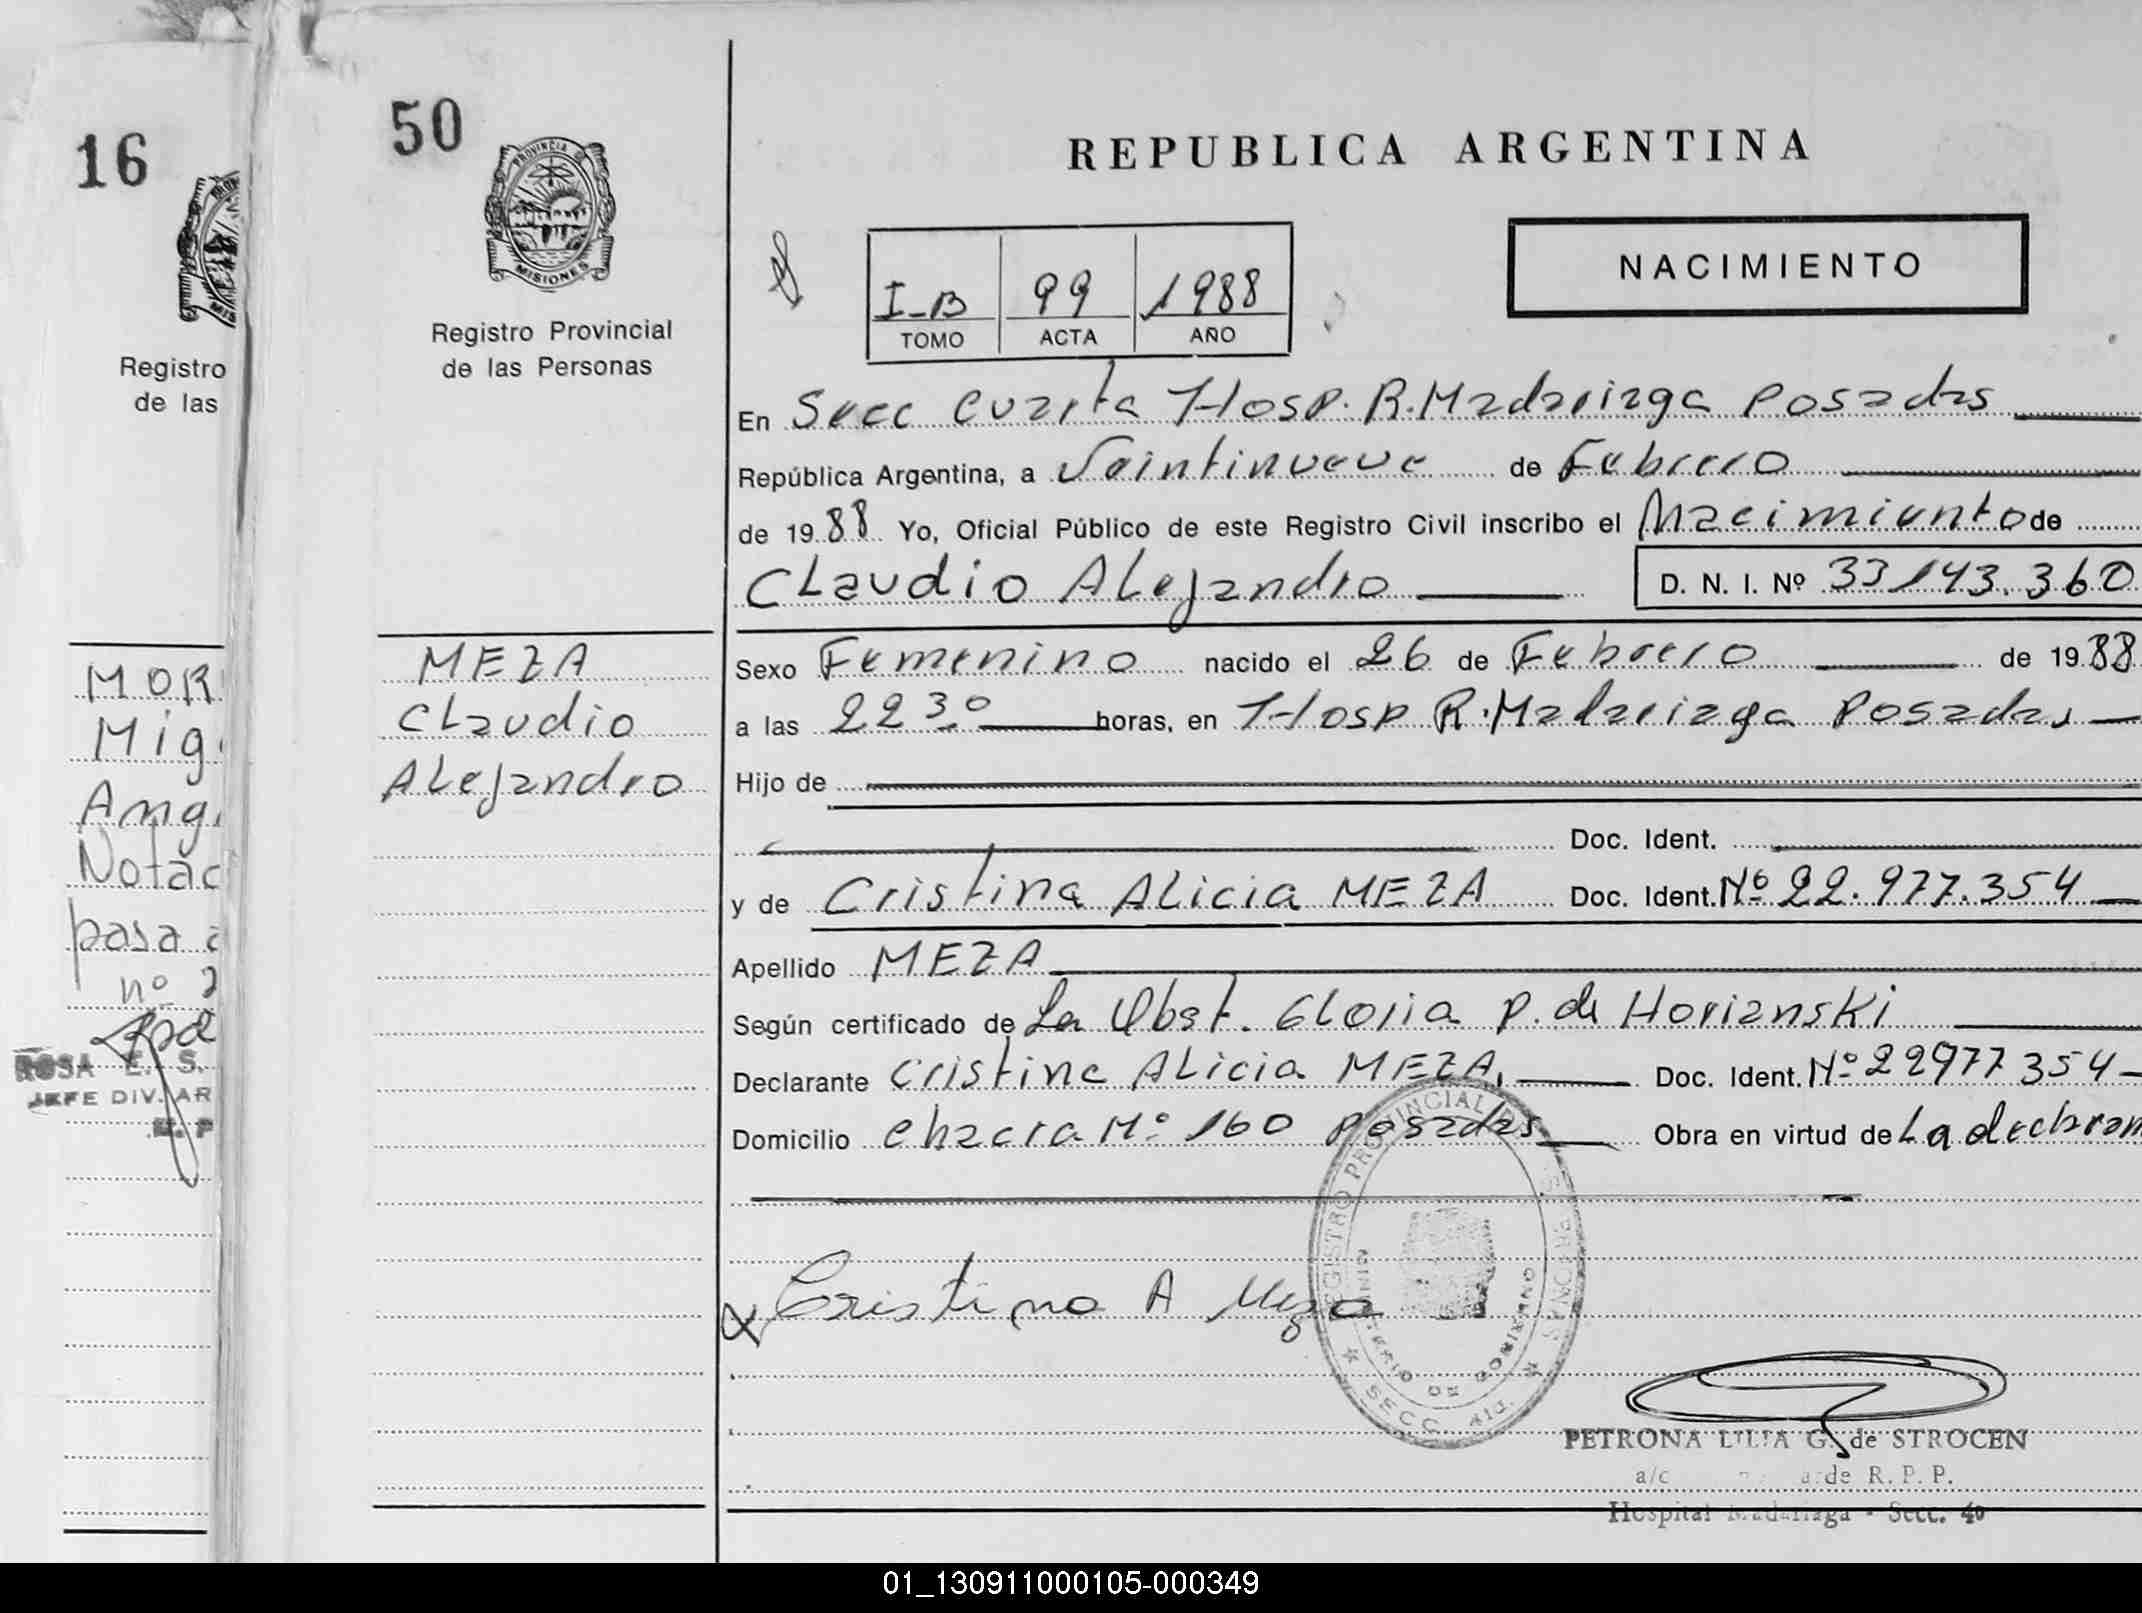 16
Registro
de las
MOR
Mig
Ang
Notac
pasa a
nº 2
ROSA E. S.
JEFE DIV. AR
R. P
50
PROVINCIA DE
MISIONES
Registro Provincial
de las Personas
MEZA
CLaudio
ALejandro
REPUBLICA ARGENTINA
I-B 99 1988
TOMO ACTA AÑO
NACIMIENTO
En Secc Cuarta Hosp. R. Madariaga Posadas
República Argentina, a Veintinueve de Febrero
de 1988 Yo, Oficial Público de este Registro Civil inscribo el Nacimiento de
CLaudio ALejandro D. N. I. Nº 33143.360
Sexo Femenino nacido el 26 de Febrero de 1988
a las 2230 horas, en Hosp R. Madariaga Posadas
Hijo de
Doc. Ident.
y de Cristina ALicia MEZA Doc. Ident. Nº 22.977.354
Apellido MEZA
Según certificado de La Obst. GLoria P. de Horianski
Declarante Cristina ALicia MEZA, Doc. Ident. Nº 22977354
Domicilio Chacra Nº 160 Posadas Obra en virtud de La declaran
REGISTRO PROVINCIAL DE LAS PERSONAS
SECC. 4ta.
Cristina A Meza
PETRONA LILIA G. de STROCEN
a/c de R. P. P.
Hospital Madariaga - Secc. 4a
01_130911000105-000349